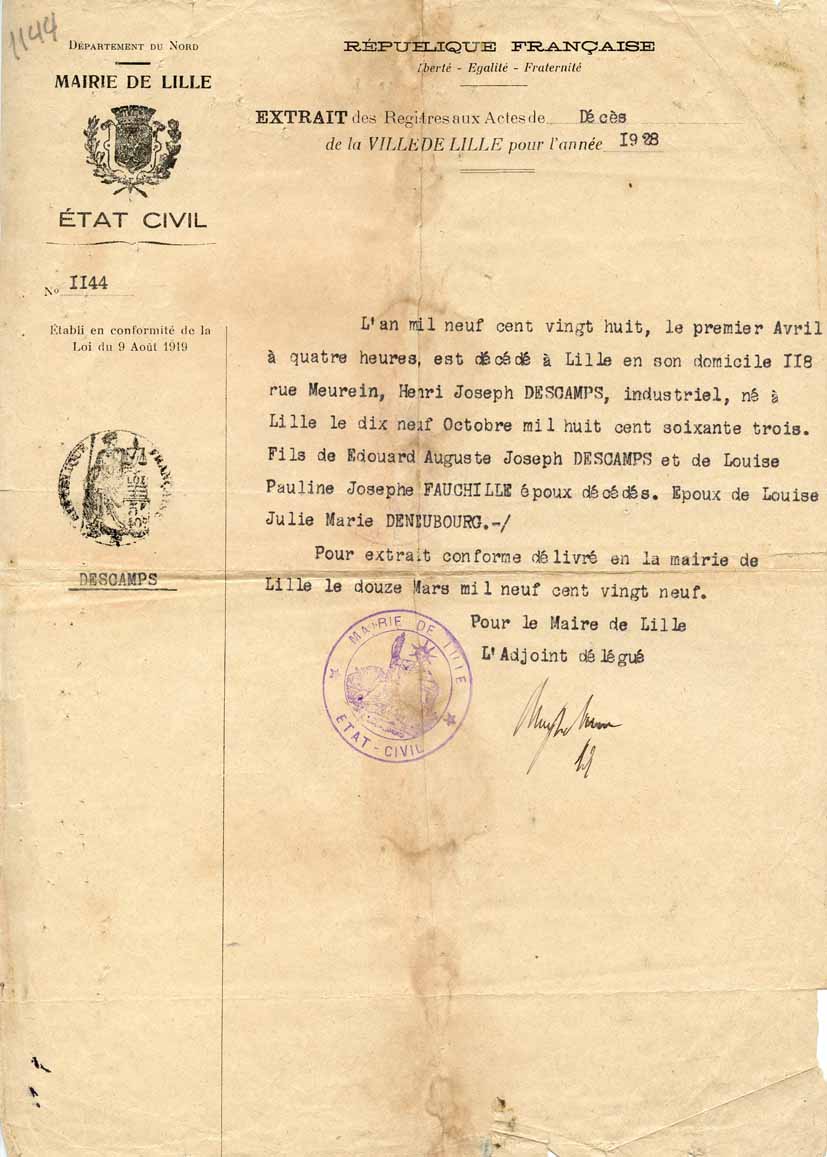 1144
DÉPARTEMENT DU NORD
MAIRIE DE LILLE
ÉTAT CIVIL
No 1144
Établi en conformité de la
Loi du 9 Août 1919
RÉPUBLIQUE FRANÇAISE
DESCAMPS
RÉPUBLIQUE FRANÇAISE
iberté - Egalité - Fraternité
EXTRAIT des Registres aux Actes de Décès
de la VILLE DE LILLE pour l'année 1928
L'an mil neuf cent vingt huit, le premier Avril
à quatre heures, est décédé à Lille en son domicile 118
rue Meurein, Henri Joseph DESCAMPS, industriel, né à
Lille le dix neuf Octobre mil huit cent soixante trois.
Fils de Edouard Auguste Joseph DESCAMPS et de Louise
Pauline Josephe FAUCHILLE époux décédés. Epoux de Louise
Julie Marie DENEUBOURG.-/
Pour extrait conforme délivré en la mairie de
Lille le douze Mars mil neuf cent vingt neuf.
Pour le Maire de Lille
L'Adjoint délégué
MAIRIE DE LILLE
ETAT-CIVIL